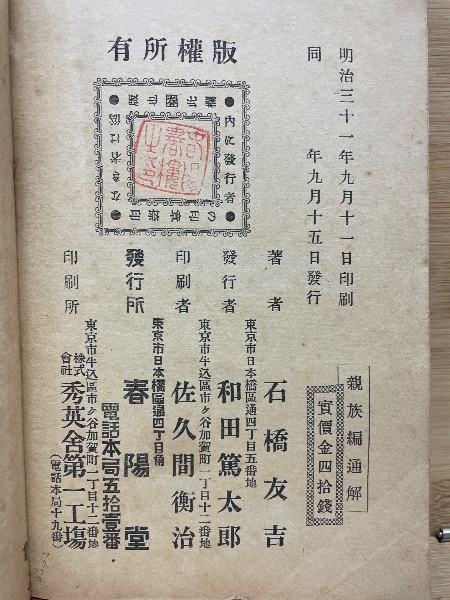 明治三十一年九月十一日印刷
同　年九月十五日發行
版權所有
●內に發行者●
の
なき者は僞
親族編通解
實價金四拾錢
著者
石橋友吉
東京市日本橋區通四丁目五番地
發行者
和田篤太郎
東京市牛込區市ヶ谷加賀町一丁目十二番地
印刷者
佐久間衡治
東京市日本橋區通四丁目角
發行所
春陽堂
電話本局五拾壹番
東京市牛込區市ヶ谷加賀町一丁目十二番地
印刷所
株式會社 秀英舍第一工塲
(電話本局十九番)